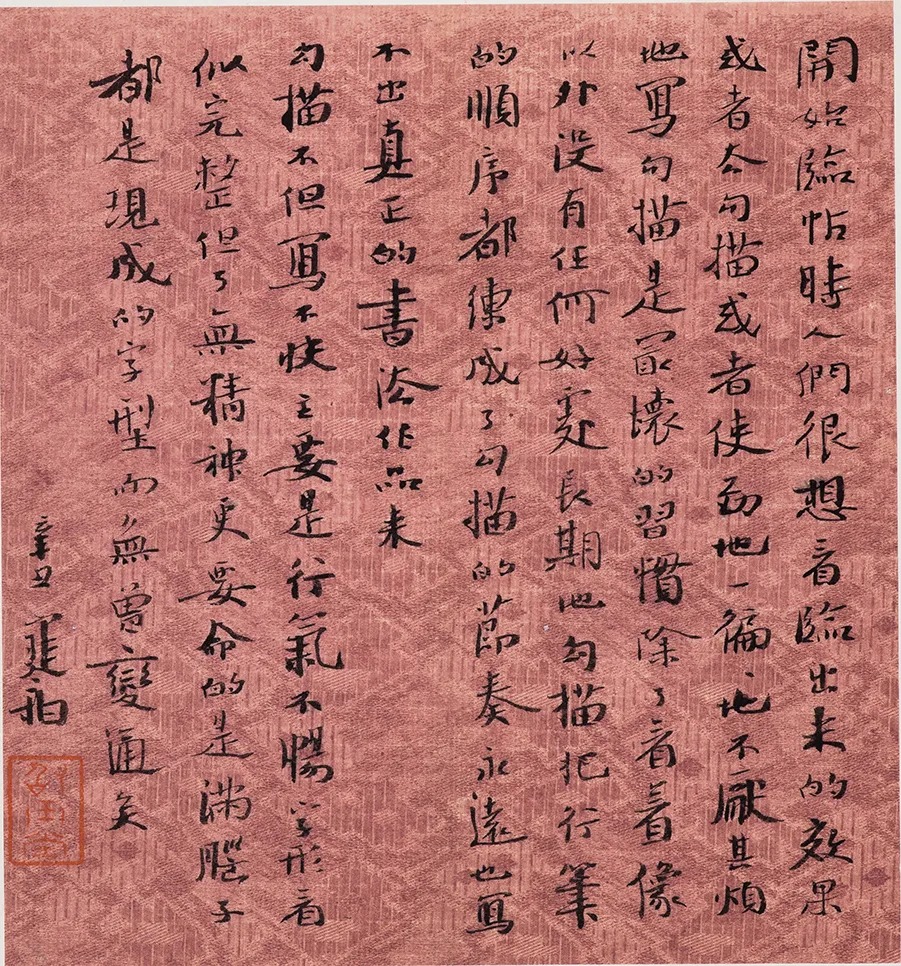 開始臨帖時人們很想看臨出来的效果
或者去勾描或者使勁地一徧〻地不厭其煩
地寫勾描是最壞的習慣除了看着像
以外沒有任何好處長期地勾描把行筆
的順序都練成了勾描的節奏永遠也寫
不出真正的書法作品来
勾描不但寫不快主要是行氣不暢字形看
似完整但了無精神更要命的是滿腦子
都是現成的字型而無曾變通矣
辛丑